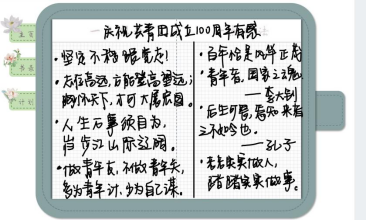 庆祝共青团成立100周年有感
·坚贞不移跟党走!
·志位高远,方能登高望远;
胸怀天下,才可大展宏图。
·人生万事须自为,
跬步江山即辽阔。
·做青年友,不做青年"官",
多为青年计,少为自己谋。
·百年恰是风华正茂
·青年者,国家之魂
——李大钊
·后生可畏,焉知来者
之不如今也。
——孔子
·老老实实做人,
踏踏实实做事。
主页
计划